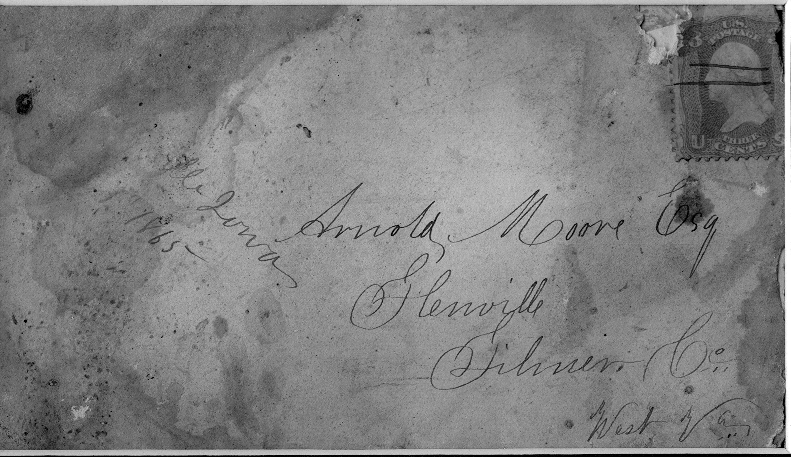 U.S.
POSTAGE
3
U S
THREE
CENTS
Iowa
1865
Arnold Moore Esq
Glenville
Gilmer Co.
West Va.